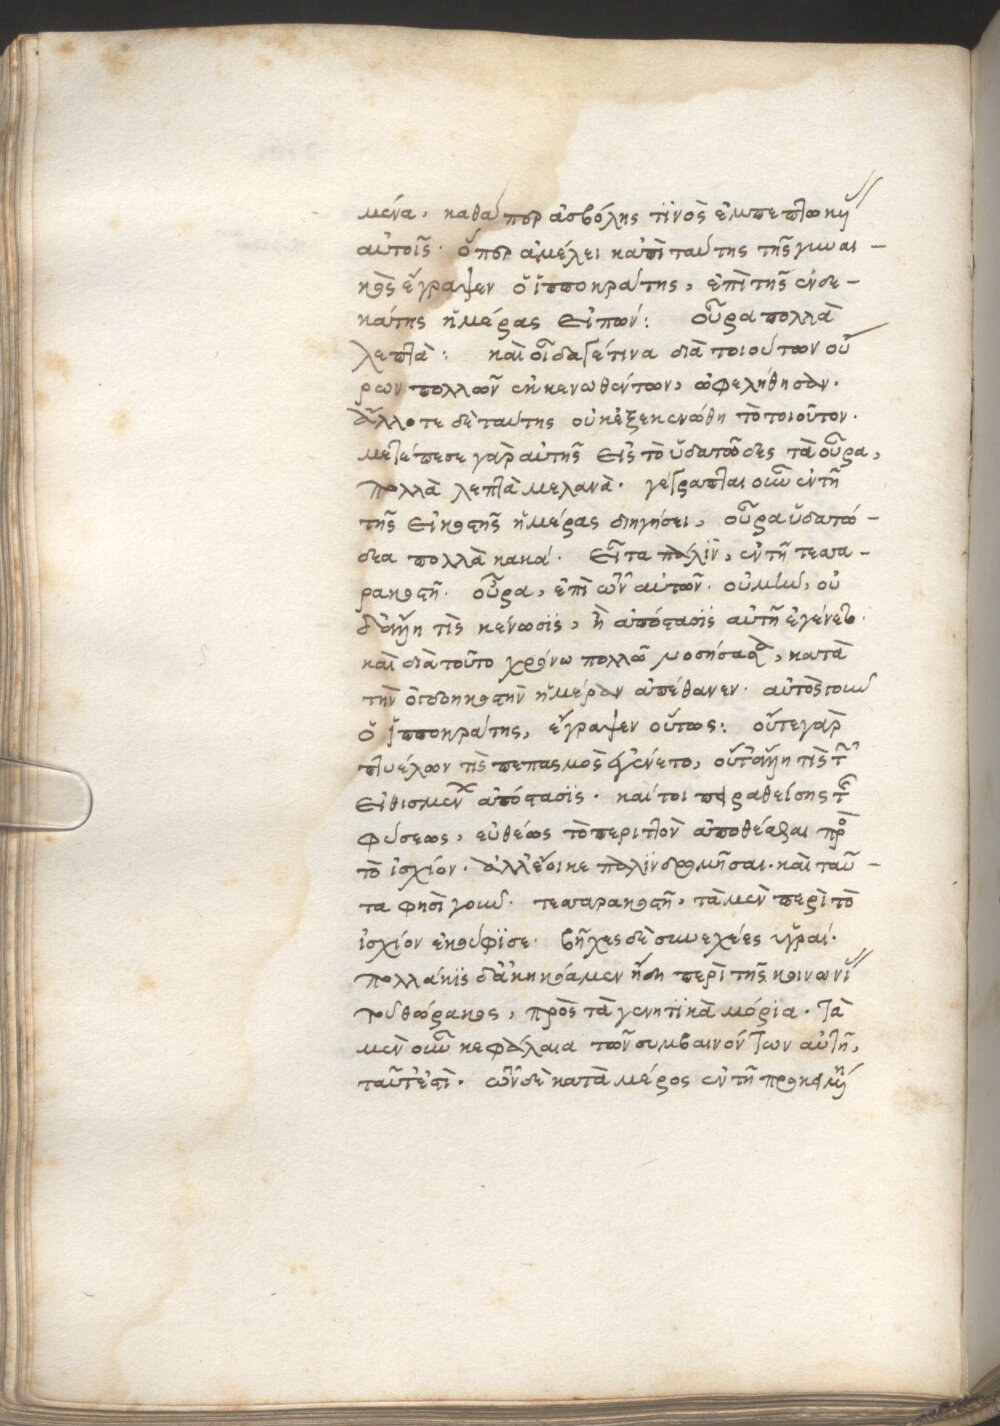 μένα. καθάπερ ἀσβόλης τινὸς ἐμπεπτωκυί
αὐτοῖς. ὅπερ ἀμέλει κἀπὶ ταύτης τῆς γυναι-
κὸς ἔγραψεν ὁ ἱπποκράτης, ἐπὶ τῆς ἑνδε-
κάτης ἡμέρας εἰπών: οὖρα πολλὰ
λεπτὰ: καὶ οἶδά γέ τινα διὰ τοιούτων οὔ
ρων πολλῶν ἐκκενωθέντων, ὠφελήθησαν.
ἄλλοτε δὲ ταύτης οὐκ ἐξεκενώθη τὸ τοιοῦτον.
μετέπεσε γὰρ αὐτῆς εἰς τὸ ὑδατῶδες τὰ οὖρα,
πολλὰ λεπτὰ μελανὰ. γέγραπται οὖν ἐν τῇ
τῆς εἰκοστῆς ἡμέρας διηγήσει, οὖρα ὑδατώ-
δεα πολλὰ κακά. εἶτα πάλιν, ἐν τῇ τεσσα-
ρακοστῇ. οὖρα, ἐπὶ ὧν αὐτῶν. οὐ μὴν, οὐ
δ' ἄλλη τὶς κένωσις, ἢ ἀπόστασις αὐτῇ ἐγένετο.
καὶ διὰ τοῦτο χρόνω πολλῶ νοσήσασα, κατὰ
τὴν ὀγδοηκοστὴν ἡμέραν ἀπέθανεν. αὐτὸς γοῦν
ὁ ἱπποκράτης, ἔγραψεν οὕτως: οὔτε γὰρ
πτυέλων τὶς πεπασμὸς ἐγένετο, οὔτ' ἄλλη τὶς τῶν
εἰθισμένων ἀπόστασις. καίτοι πειραθείσης τῆς
φύσεως, εὐθέως τὸ περιττὸν ἀποθέσθαι πρὸς
τὸ ἰσχίον. ἀλλ' ἔοικε πάλιν δραμῆσαι. καὶ ταῦ-
τα φησὶ γοῦν. τεσσαρακοστῇ, τὰ μὲν περὶ τὸ
ἰσχίον ἐκούφισε. βῆχες δὲ συνεχέες ὑγραί.
πολλάκις δ' ἀκηκόαμεν ἤδη περὶ τῆς κοινωνί
τοῦ θώρακος, πρὸς τὰ γεννητικὰ μόρια. τὰ
μὲν οὖν κεφάλαια τῶν συμβαινόντων αὐτῇ,
ταῦτ' ἐστὶ. ὧν δὲ κατὰ μέρος ἐν τῇ